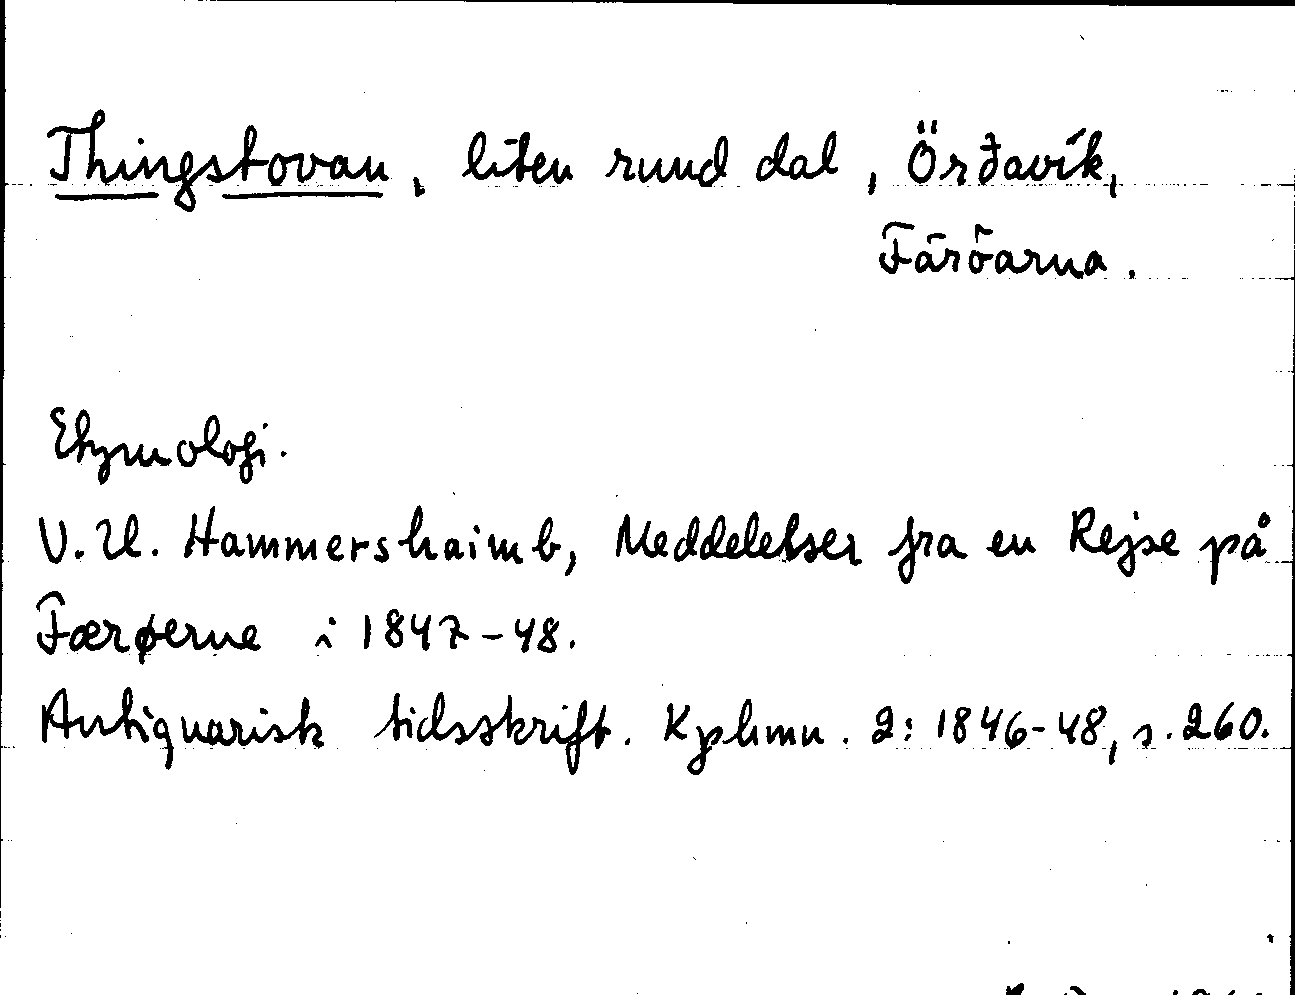 Thingstovan, liten rund dal, Örðavík,
Färöarna.
Etymologi.
V. U. Hammershaimb, Meddelelser fra en Rejse på
Færøerne i 1847-48.
Antiquarisk tidsskrift. Kphmn. 2: 1846-48, s. 260.